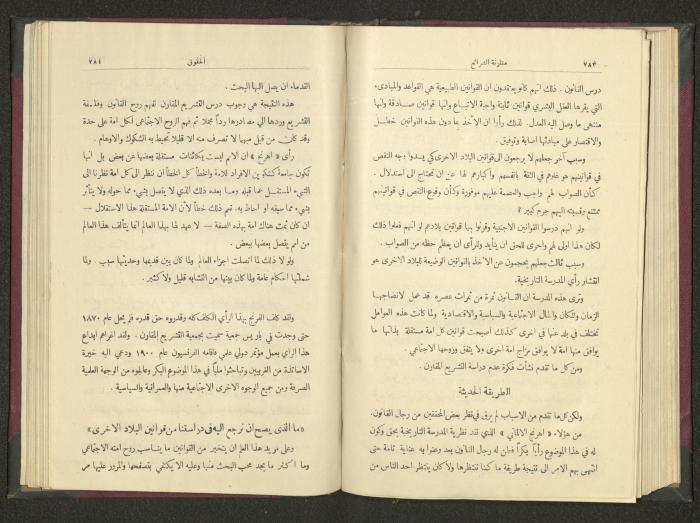 ٧٨٣ مقارنة الشرائع
درس القانون . ذلك انهم كانوا يعتقدون ان القوانين الطبيعية هي القواعد والمبادىء
التي يقرها العقل البشري كقوانين ثابتة واجبة الاتباع وانها قوانين صادقة وانها
منتهى ما وصل اليه العدل . لذلك رأوا ان الاخذ بما دون هذه القوانين خطل
والاقتصار على مبادئها اصابة وتوفيق .
وسبب آخر جعلهم لا يرجعون الى قوانين البلاد الاخرى كي يسدوا وجه النقص
في قوانينهم هو غلوهم في الثقة بانفسهم واكبارهم لها عن ان تحتاج الى استدلال .
كأن الصواب لهم واجب والعصمة عليهم موفورة وكأن وقوع النقص في قوانينهم
ممتنع ونسبته اليهم جرح كبير »
ولو انهم درسوا القوانين الاجنبية وقرنوا بها قوانين بلادهم لو انهم فعلوا ذلك
لكان هذا اولى لهم واحرى للحق ان يتأيد وللرأى ان يعظم حظه من الصواب .
وسبب ثالث جعلهم يحجمون عن الاخذ بالقوانين الوضعية للبلاد الاخرى هو
انتشار رأي المدرسة التاريخية .
وترى هذه المدرسة ان القانون ثمرة من ثمرات عصره قد عمل لانضاجها
الزمان والمكان والحال الاجتماعية والسياسية والاقتصادية ولما كانت هذه العوامل
تختلف في بلد عنها في اخرى كذلك اصبحت قوانين كل امة مستقلة بذاتها ما
يوافق منها امة لا يوافق مزاج امة اخرى ولا يتفق وروحها الاجتماعي .
ومن كل ما تقدم نشأت فكرة عدم دراسة التشريع المقارن .
الطريقة الحديثة
ولكن كل ما تقدم من الاسباب لم يرق في نظر بعض المحققين من رجال القانون.
من هؤلاء « اهرنج الالماني » الذي نقد نظرية المدرسة التاريخية بحق وكون
له في هذا الموضوع رأياً بكراً فطن له رجال القانون بعد وعنوا به عناية تامة حتى
انتهى بهم الامر الى نتيجة طريفة ما كنا ننتظرها ولا كان ينتظر احد الناس من
الحقوق ٧٨٤
القدماء ان يصل اليها البحث .
هذه النتيجة هي وجوب درس التشريع المقارن لفهم روح القانون وفلسفة
التشريع وردها الي مصادرها رداً مجملا ثم فهم الروح الاجتماعي لكل امة على حدة
وقد كان من قبل مبهما لا تصرف منه الا قليلا تحيط به الشكوك والاوهام .
رأى « اهرنج » ان الامم ليست بكائنات مستقلة بعضها عن بعض بل انها
تكون جامعة كتكوين الافراد للامة والخطأ كل الخطأ ان ننظر الى كل امة نظرنا الى
الشيء المستقل عما قبله وعما بعده ذلك الذي لا يتصل بشيء مما حوله ولا يتأثر
بشيء مما سبقه او احاط به. نعم ذلك خطأ لان الامة المستقلة هذا الاستقلال —
ان كان ثمت هناك امة بهذه الصفة — لا عهد لها بهذا العالم انما يتألف هذا العالم
من امم يتصل بعضها ببعض .
ولو لا ذلك لما اتصلت اجزاء العالم ولما كان بين قديمها وحديثها سبب . ولما
شملتها احكام عامة ولما كان بينها من التشابه قليل ولا كثير .
ولقد كلف الفرنج بهذا الرأي الكلف كله وقدروه حق قدره فلم يحل عام ١٨٧٠
حتى وجدت في باريس جمعية سميت بجمعية التشريع المقارن . ولقد اغراهم ابداع
هذا الرأي بعمل مؤتمر دولي علمي فاقامه الفرنسيون عام ١٩٠٠ ودعي اليه خيرة
الاساتذة من الغربيين وتباحثوا ملياً في هذا الموضوع البكر وعالجوه من الوجهة العلمية
الصرفة ومن جميع الوجوه الاخرى الاجتماعية منها والعمرانية والسياسية .
«ما الذى يصح ان نرجع اليه فى دراستنا من قوانين البلاد الاخرى»
وعلى مريد هذا العلم ان يتخير من القوانين ما يناسب روح امته الاجتماعي
وما اكثر ما يجد محب البحث منها وعليه الا يكتفي بتصفحها والمرور عليها مر